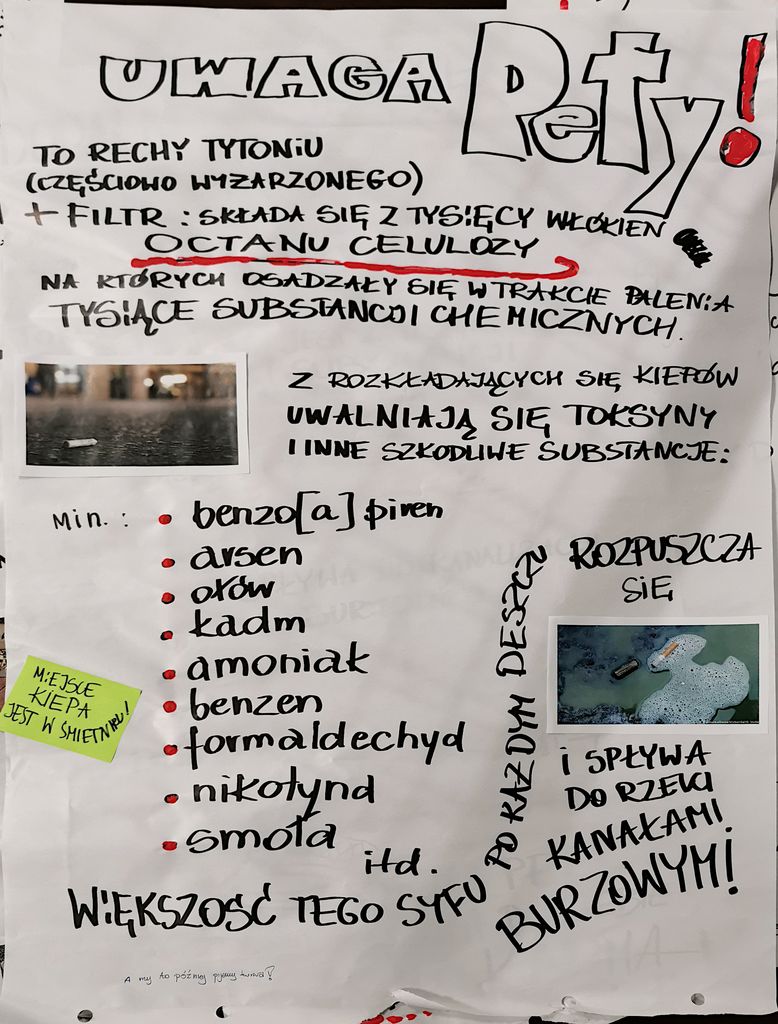 UWAGA Pety!
TO RECHY TYTONIU
(CZĘŚCIOWO WYŻARZONEGO)
+ FILTR : SKŁADA SIĘ Z TYSIĘCY WŁÓKIEN
OCTANU CELULOZY
NA KTÓRYCH OSADZAŁY SIĘ W TRAKCIE PALENIA
TYSIĄCE SUBSTANCJI CHEMICZNYCH.
Z ROZKŁADAJĄCYCH SIĘ KIEPÓW
UWALNIAJĄ SIĘ TOKSYNY
I INNE SZKODLIWE SUBSTANCJE:
Min. : • benzo[a] piren
• arsen
• ołów
• kadm
• amoniak
• benzen
• formaldechyd
• nikotynd
• smoła
itd.
MIEJSCE
KIEPA
JEST W ŚMIETNIKU!
WIĘKSZOŚĆ TEGO SYFU
PO KAŻDYM DESZCZU
ROZPUSZCZA
SIĘ
i SPŁYWA
DO RZEKI
KANAŁAMI
BURZOWYM!
A my to później pijemy kurwa!